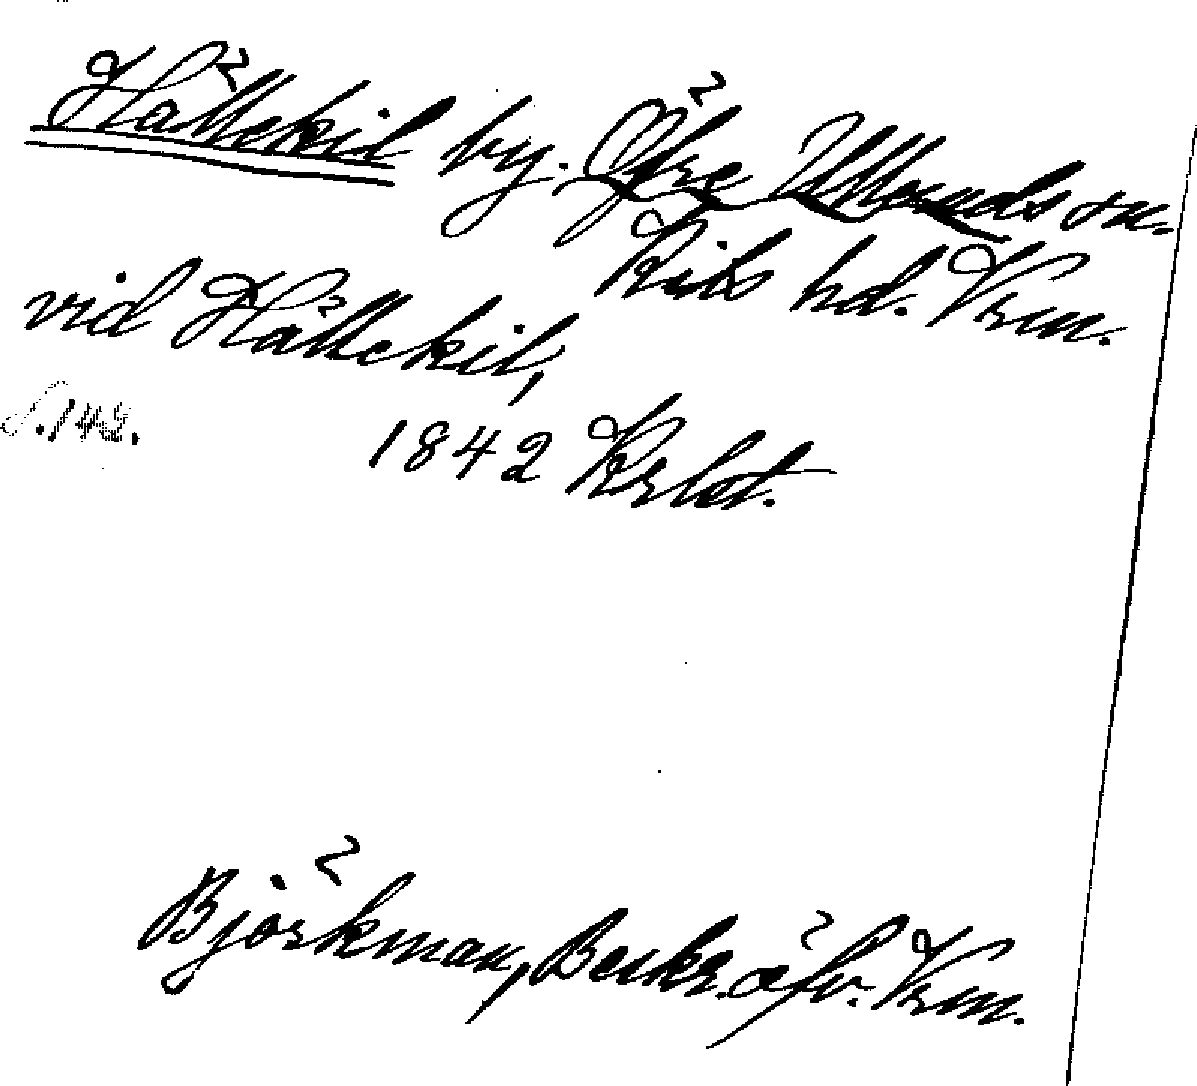 Hällekil by. Öfre Ulleruds sn.
Kils hd. Vrm.
vid Hällekil,
S. 142.
1842 Krlst.
Björkman, Beskr. öfv. Vrm.